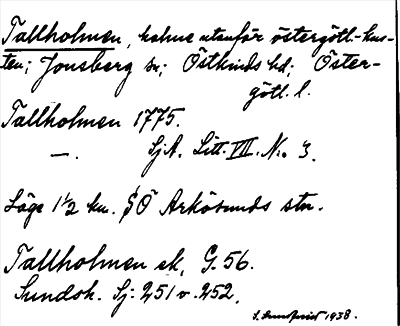 Tallholmen, holme utanför östergötl.-kus-
ten; Jonsberg sn; Östkinds hd; Öster-
götl. l.
Tallholmen 1775.
—. SjA. Litt. VII. No 3.
Läge 1 1/2 km. SÖ Arkösunds stn.
Tallholmen ek, G. 56.
Sundsh. Sj: 251 v. 252.
1938.